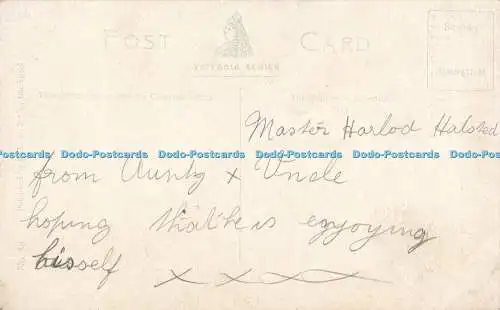 POST CARD
VICTORIA SERIES
Master Harlod Halsted
Dodo-Postcards Dodo-Postcards Dodo-Postcards Dodo-Postcards Dodo-Postcards
from Aunty x Uncle
hoping that he is egyoying
hisself x x x x